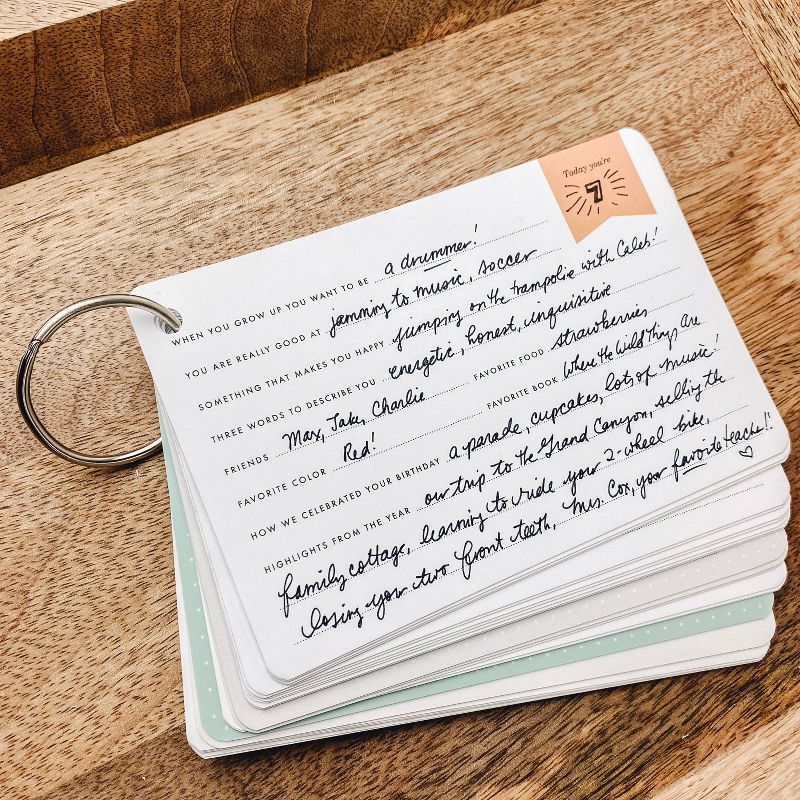 Today you're
7
WHEN YOU GROW UP YOU WANT TO BE a drummer!
YOU ARE REALLY GOOD AT jamming to music, soccer
SOMETHING THAT MAKES YOU HAPPY jumping on the trampolie with Caleb!
THREE WORDS TO DESCRIBE YOU energetic, honest, inquisitive
FRIENDS Max, Jake, Charlie FAVORITE FOOD strawberries
FAVORITE COLOR Red! FAVORITE BOOK Where the Wild Things Are
HOW WE CELEBRATED YOUR BIRTHDAY a parade, cupcakes, lots of music!
HIGHLIGHTS FROM THE YEAR our trip to the Grand Canyon, selling the
family cottage, learning to ride your 2-wheel bike,
losing your two front teeth, Mrs Cox, your favorite teacher!! ♡